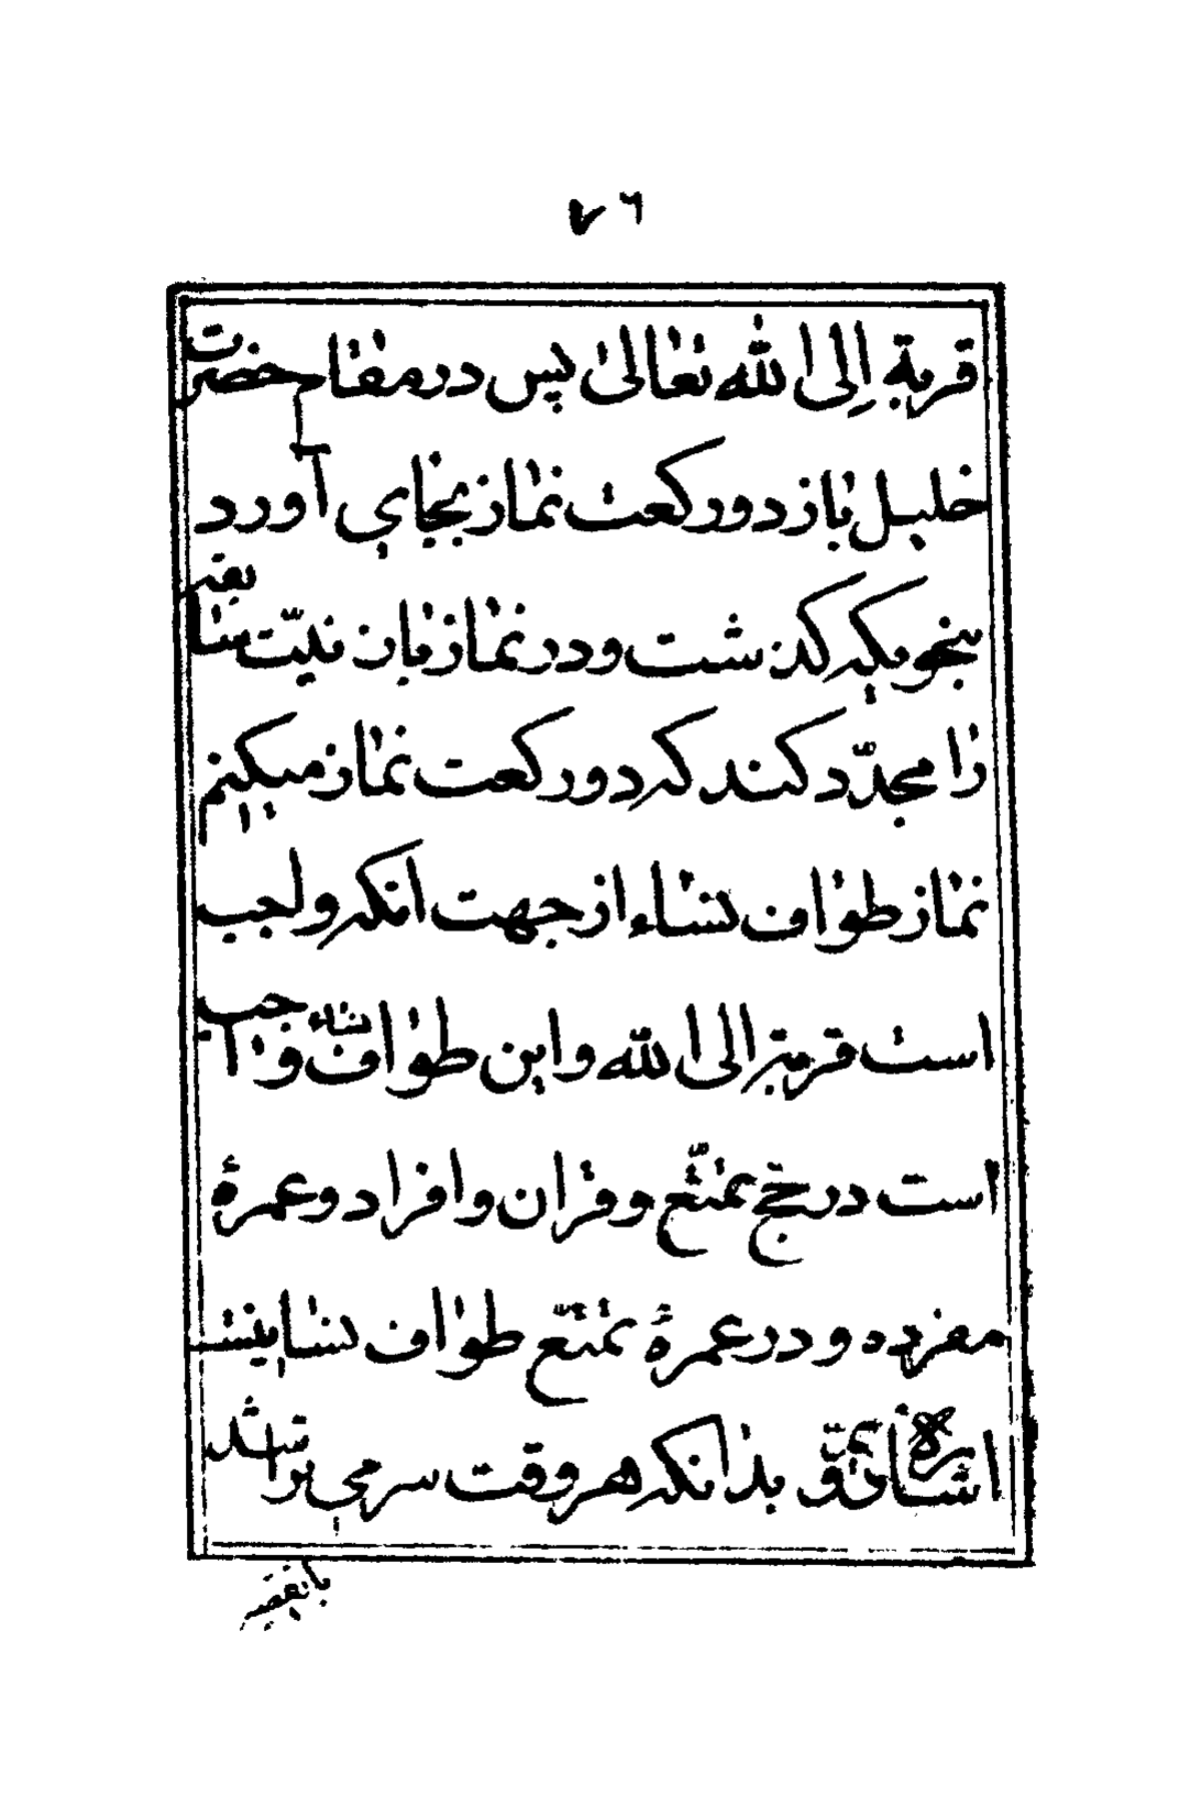 ٧٦
قربة إلى الله تعالى پس در مقام حضرت
خلیل باز دو رکعت نماز بجای آورد
بنحویکه کذشت و در نماز بازن نیّت سابقه
را مجدّد کند که دو رکعت نماز میکنم
نماز طواف نساء از جهت انکه واجب
است قربة الی الله و این طواف نساء واجب
است در حج تمتّع و قران و افراد و عمرهٔ
مفرده و در عمرهٔ تمتّع طواف نسا نیست
بدانکه هر وقت سر می تراشد